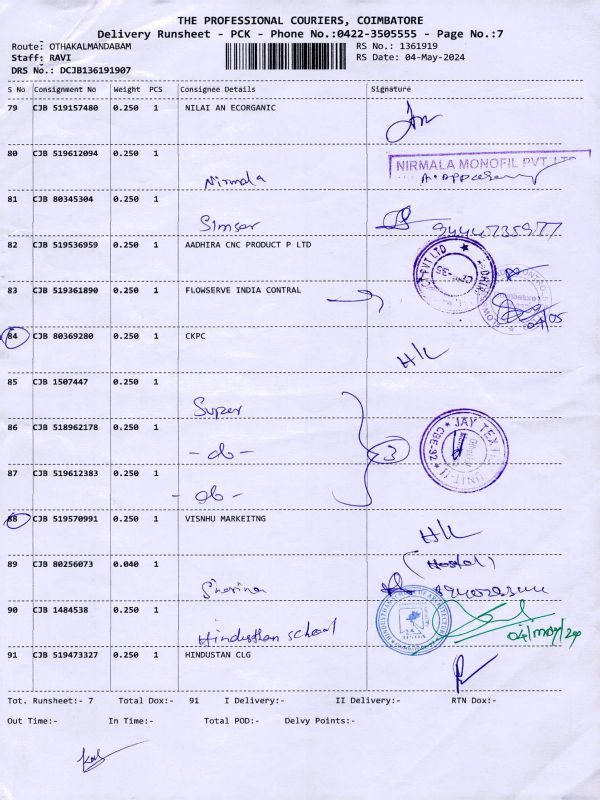 THE PROFESSIONAL COURIERS, COIMBATORE
Delivery Runsheet - PCK - Phone No.:0422-3505555 - Page No.:7
Route: OTHAKALMANDABAM
RS No.: 1361919
Staff: RAVI
RS Date: 04-May-2024
DRS No.: DCJB136191907
S No Consignment No Weight PCS Consignee Details Signature
79 CJB 519157480 0.250 1 NILAI AN ECORGANIC
80 CJB 519612094 0.250 1
Nirmala
NIRMALA MONOFIL PVT LTD
81 CJB 80345304 0.250 1
Simser
82 CJB 519536959 0.250 1 AADHIRA CNC PRODUCT P LTD
83 CJB 519361890 0.250 1 FLOWSERVE INDIA CONTRAL
04/05
84 CJB 80369280 0.250 1 CKPC
H/L
85 CJB 1507447 0.250 1
Super
86 CJB 518962178 0.250 1
- do -
3
JAY TEXTILE UNIT-II CBE-32
87 CJB 519612383 0.250 1
- do -
88 CJB 519570991 0.250 1 VISNHU MARKEITNG
H/L
89 CJB 80256073 0.040 1
(Hostel)
90 CJB 1484538 0.250 1
Hindusthan school
04/may/24
91 CJB 519473327 0.250 1 HINDUSTAN CLG
Tot. Runsheet:- 7 Total Dox:- 91 I Delivery:- II Delivery:- RTN Dox:-
Out Time:- In Time:- Total POD:- Delvy Points:-